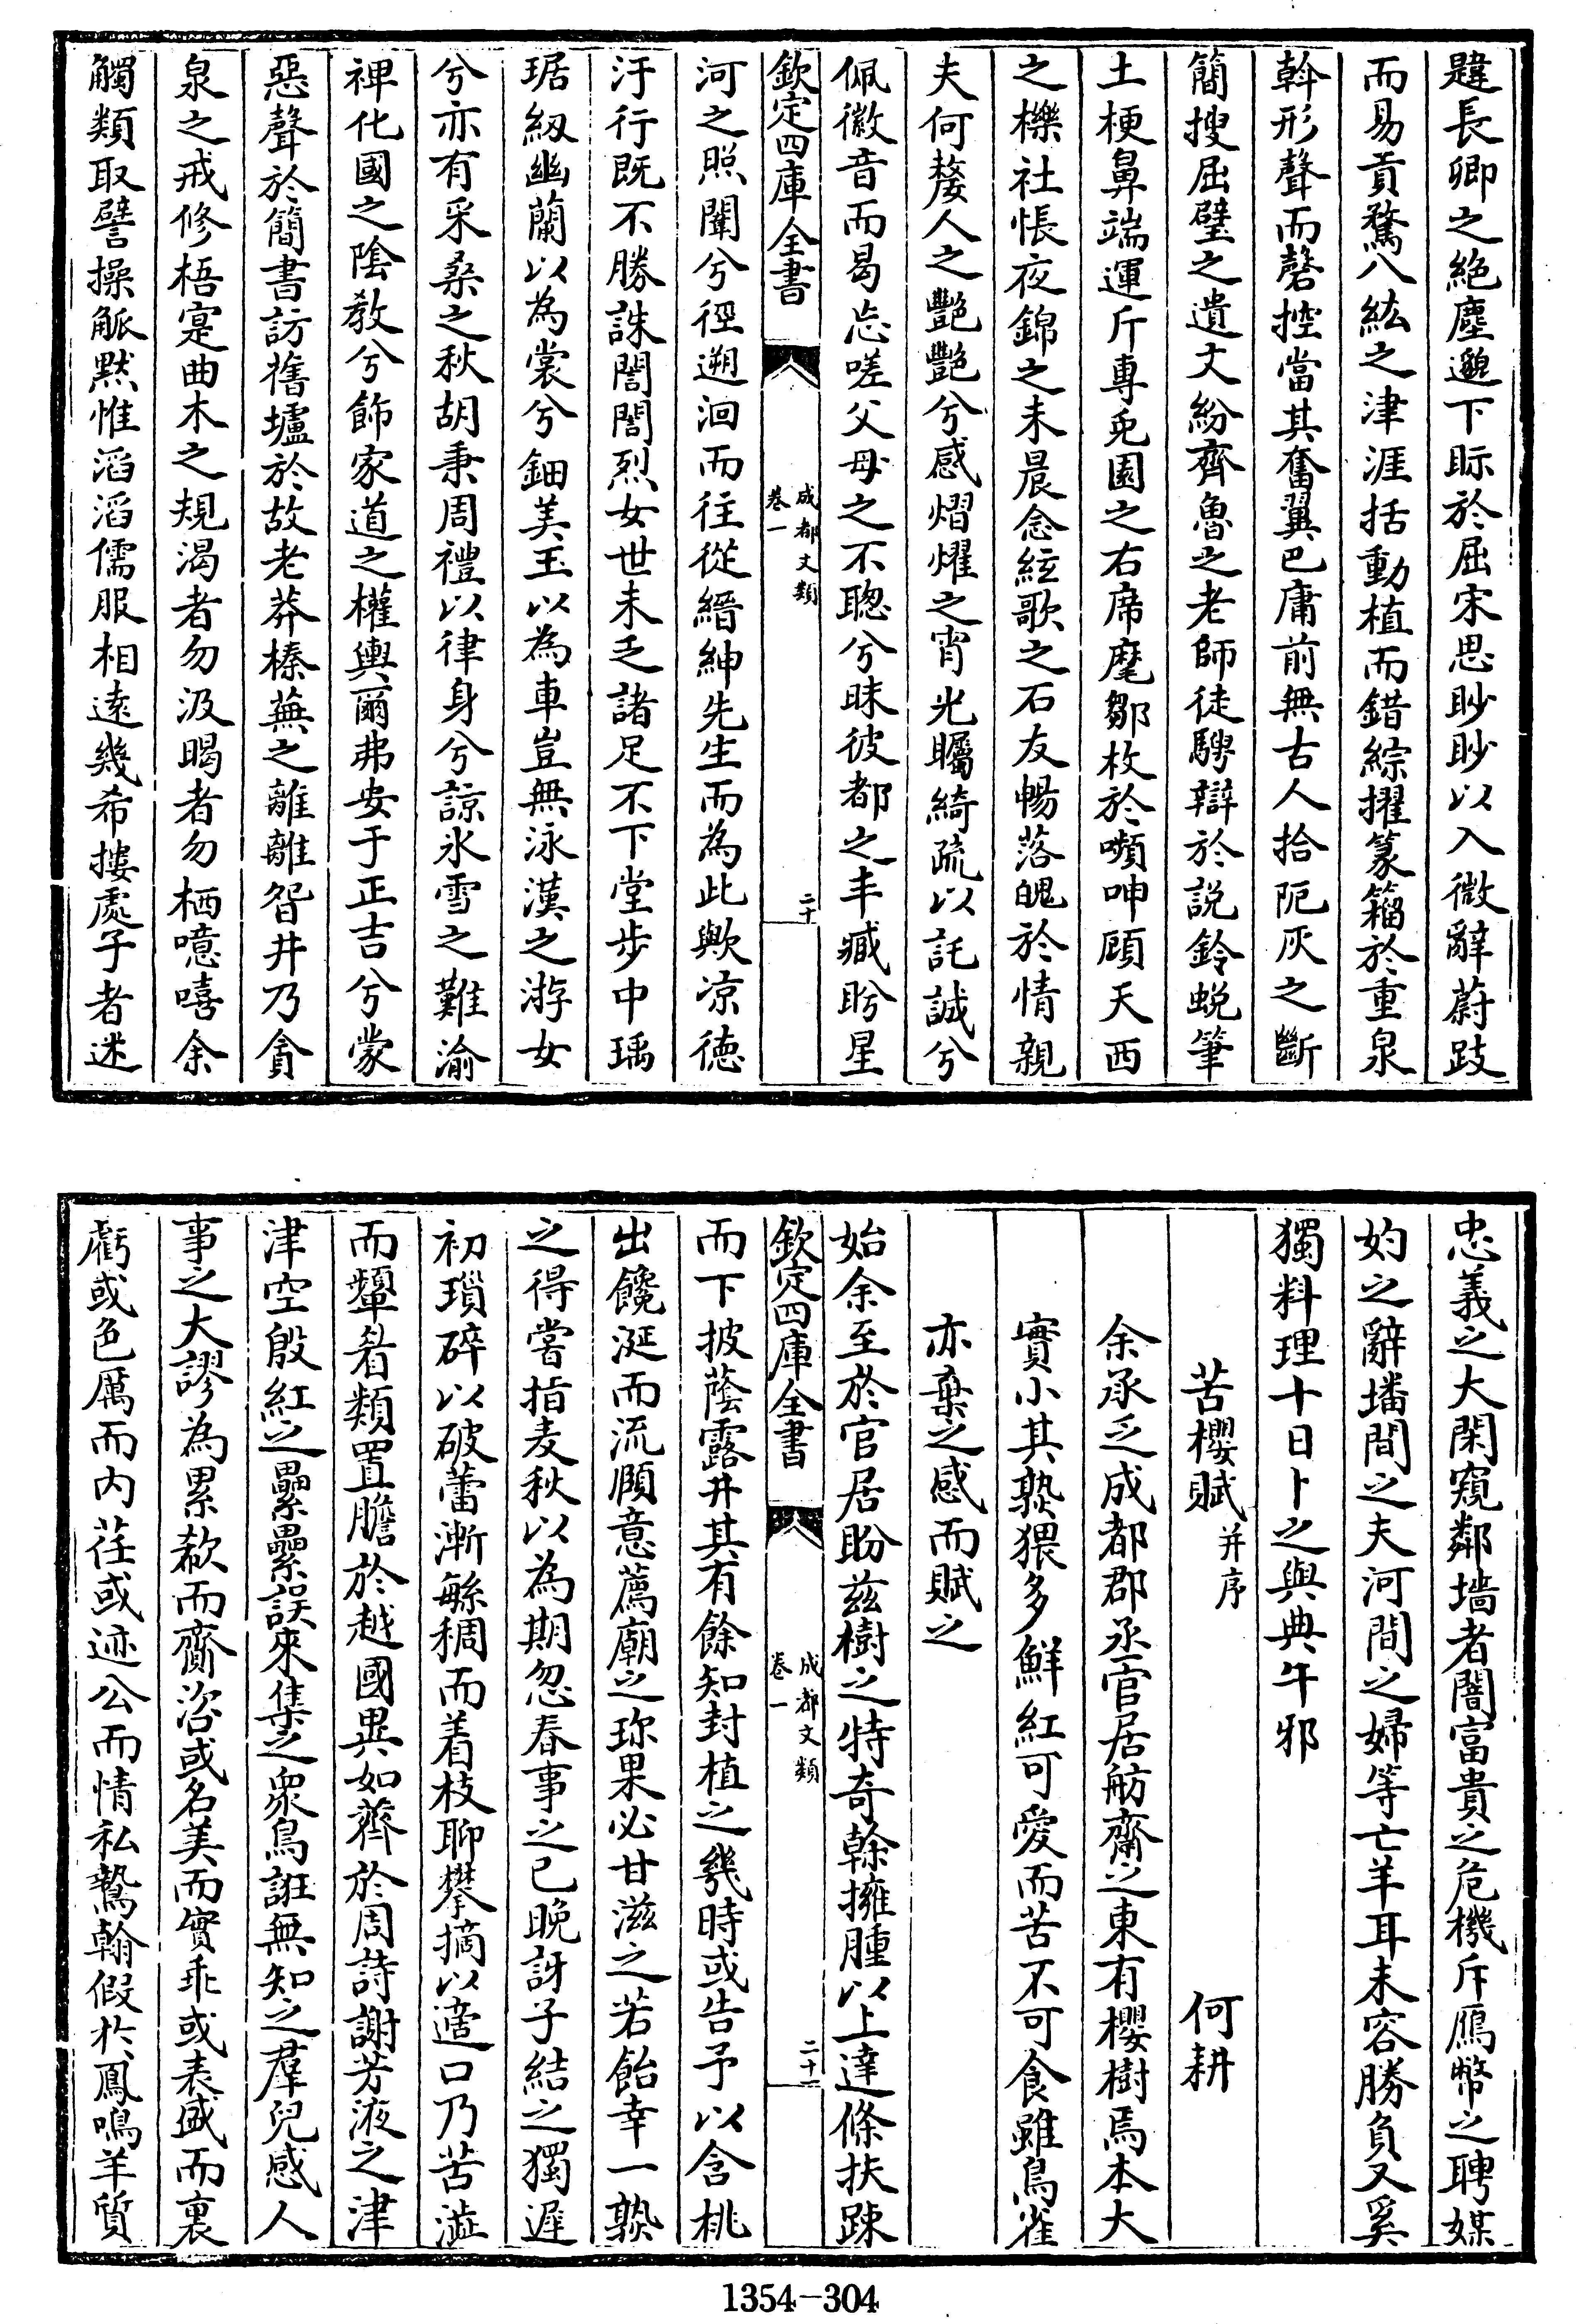 韙長卿之絶塵邈下眎於屈宋思眇眇以入微辭蔚跂
而易貢騖八紘之津涯括動植而錯綜擢篆籀於重泉
斡形聲而磬控當其奮翼巴庸前無古人拾阨灰之斷
簡搜屈壁之遺文紛齊魯之老師徒騁辯於説鈴蜕筆
土梗鼻端運斤專兎園之右席麾鄒枚於嚬呻顧天西
之櫟社悵夜錦之未晨念絃歌之石友暢落魄於情親
夫何嫠人之艷艷兮感熠燿之宵光矚綺疏以託誠兮
佩徽音而曷忘嗟父母之不聰兮昧彼都之丰臧眄星
欽定四庫全書
成都文類
卷一
二十
河之照闈兮徑遡洄而往從縉紳先生而為此歟凉德
汙行既不勝誅誾誾烈女世未乏諸足不下堂步中瑀
琚紉幽蘭以為裳兮鈿美玉以為車豈無泳漢之游女
兮亦有采桑之秋胡秉周禮以律身兮諒氷雪之難渝
裨化國之陰教兮飾家道之權輿爾弗安于正吉兮蒙
惡聲於簡書訪舊壚於故老莽榛蕪之離離眢井乃貪
泉之戒修梧寔曲木之規渴者勿汲暍者勿栖噫嘻余
觸類取譬操觚黙惟滔滔儒服相逺幾希摟處子者迷
忠義之大閑窺鄰墻者闇富貴之危機斥鴈幣之聘媒
妁之辭墦間之夫河間之婦等亡羊耳未容勝負又奚
獨料理十日卜之與典午邪
苦櫻賦并序
何耕
余承乏成都郡丞官居舫齋之東有櫻樹焉本大
實小其熟猥多鮮紅可愛而苦不可食雖鳥雀
亦棄之感而賦之
始余至於官居盼兹樹之特奇榦擁腫以上達條扶踈
欽定四庫全書
成都文類
卷一
二十一
而下披蔭露井其有餘知封植之幾時或告予以含桃
出饞涎而流頤意薦廟之珍果必甘滋之若飴幸一熟
之得嘗指麦秋以為期忽春事之已晚訝子結之獨遲
初瑣碎以破蕾漸緐稠而着枝聊攀摘以適口乃苦澁
而顰眉類置膽於越國異如薺於周詩謝芳液之津
津空殷紅之纍纍誤來集之衆鳥誑無知之羣兒感人
事之大謬為累欷而齎咨或名美而實乖或表盛而裏
虧或色厲而内荏或迹公而情私鷙翰假於鳳鳴羊質
1354-304